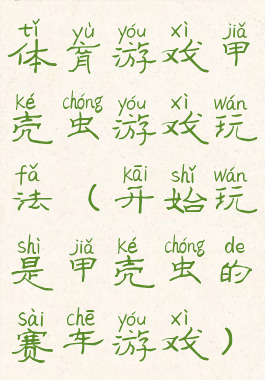 tǐ yù yóu xì jiǎ
体育游戏甲
ké chóng yóu xì wán
壳虫游戏玩
fǎ kāi shǐ wán
法（开始玩
shì jiǎ ké chóng de
是甲壳虫的
sài chē yóu xì
赛车游戏）